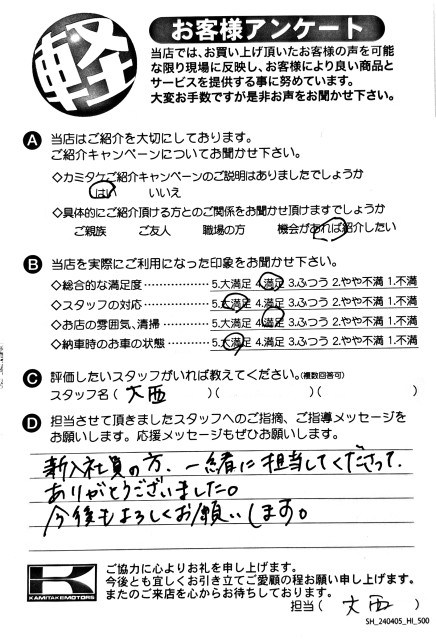 軽
お客様アンケート
当店では、お買い上げ頂いたお客様の声を可能
な限り現場に反映し、お客様により良い商品と
サービスを提供する事に努めています。
大変お手数ですが是非お声をお聞かせ下さい。
A 当店はご紹介を大切にしております。
ご紹介キャンペーンについてお聞かせ下さい。
◇カミタケご紹介キャンペーンのご説明はありましたでしょうか
はい いいえ
◇具体的にご紹介頂ける方とのご関係をお聞かせ頂けますでしょうか
ご親族 ご友人 職場の方 機会があれば紹介したい
B 当店を実際にご利用になった印象をお聞かせ下さい。
◇総合的な満足度‥‥‥‥‥ 5.大満足 4.満足 3.ふつう 2.やや不満 1.不満
◇スタッフの対応‥‥‥‥‥ 5.大満足 4.満足 3.ふつう 2.やや不満 1.不満
◇お店の雰囲気、清掃‥‥‥ 5.大満足 4.満足 3.ふつう 2.やや不満 1.不満
◇納車時のお車の状態‥‥‥ 5.大満足 4.満足 3.ふつう 2.やや不満 1.不満
C 評価したいスタッフがいれば教えてください。(複数回答可)
スタッフ名( 大西 )( )( )
D 担当させて頂きましたスタッフへのご指摘、ご指導メッセージを
お願いします。応援メッセージもぜひお願いします。
新入社員の方、一緒に担当してくださって、
ありがとうございました。
今後もよろしくお願いします。
KAMITAKEMOTORS
ご協力に心よりお礼を申し上げます。
今後とも宜しくお引き立てご愛顧の程お願い申し上げます。
またのご来店を心からお待ちしております。
担当( 大西 )
SH_240405_HI_500